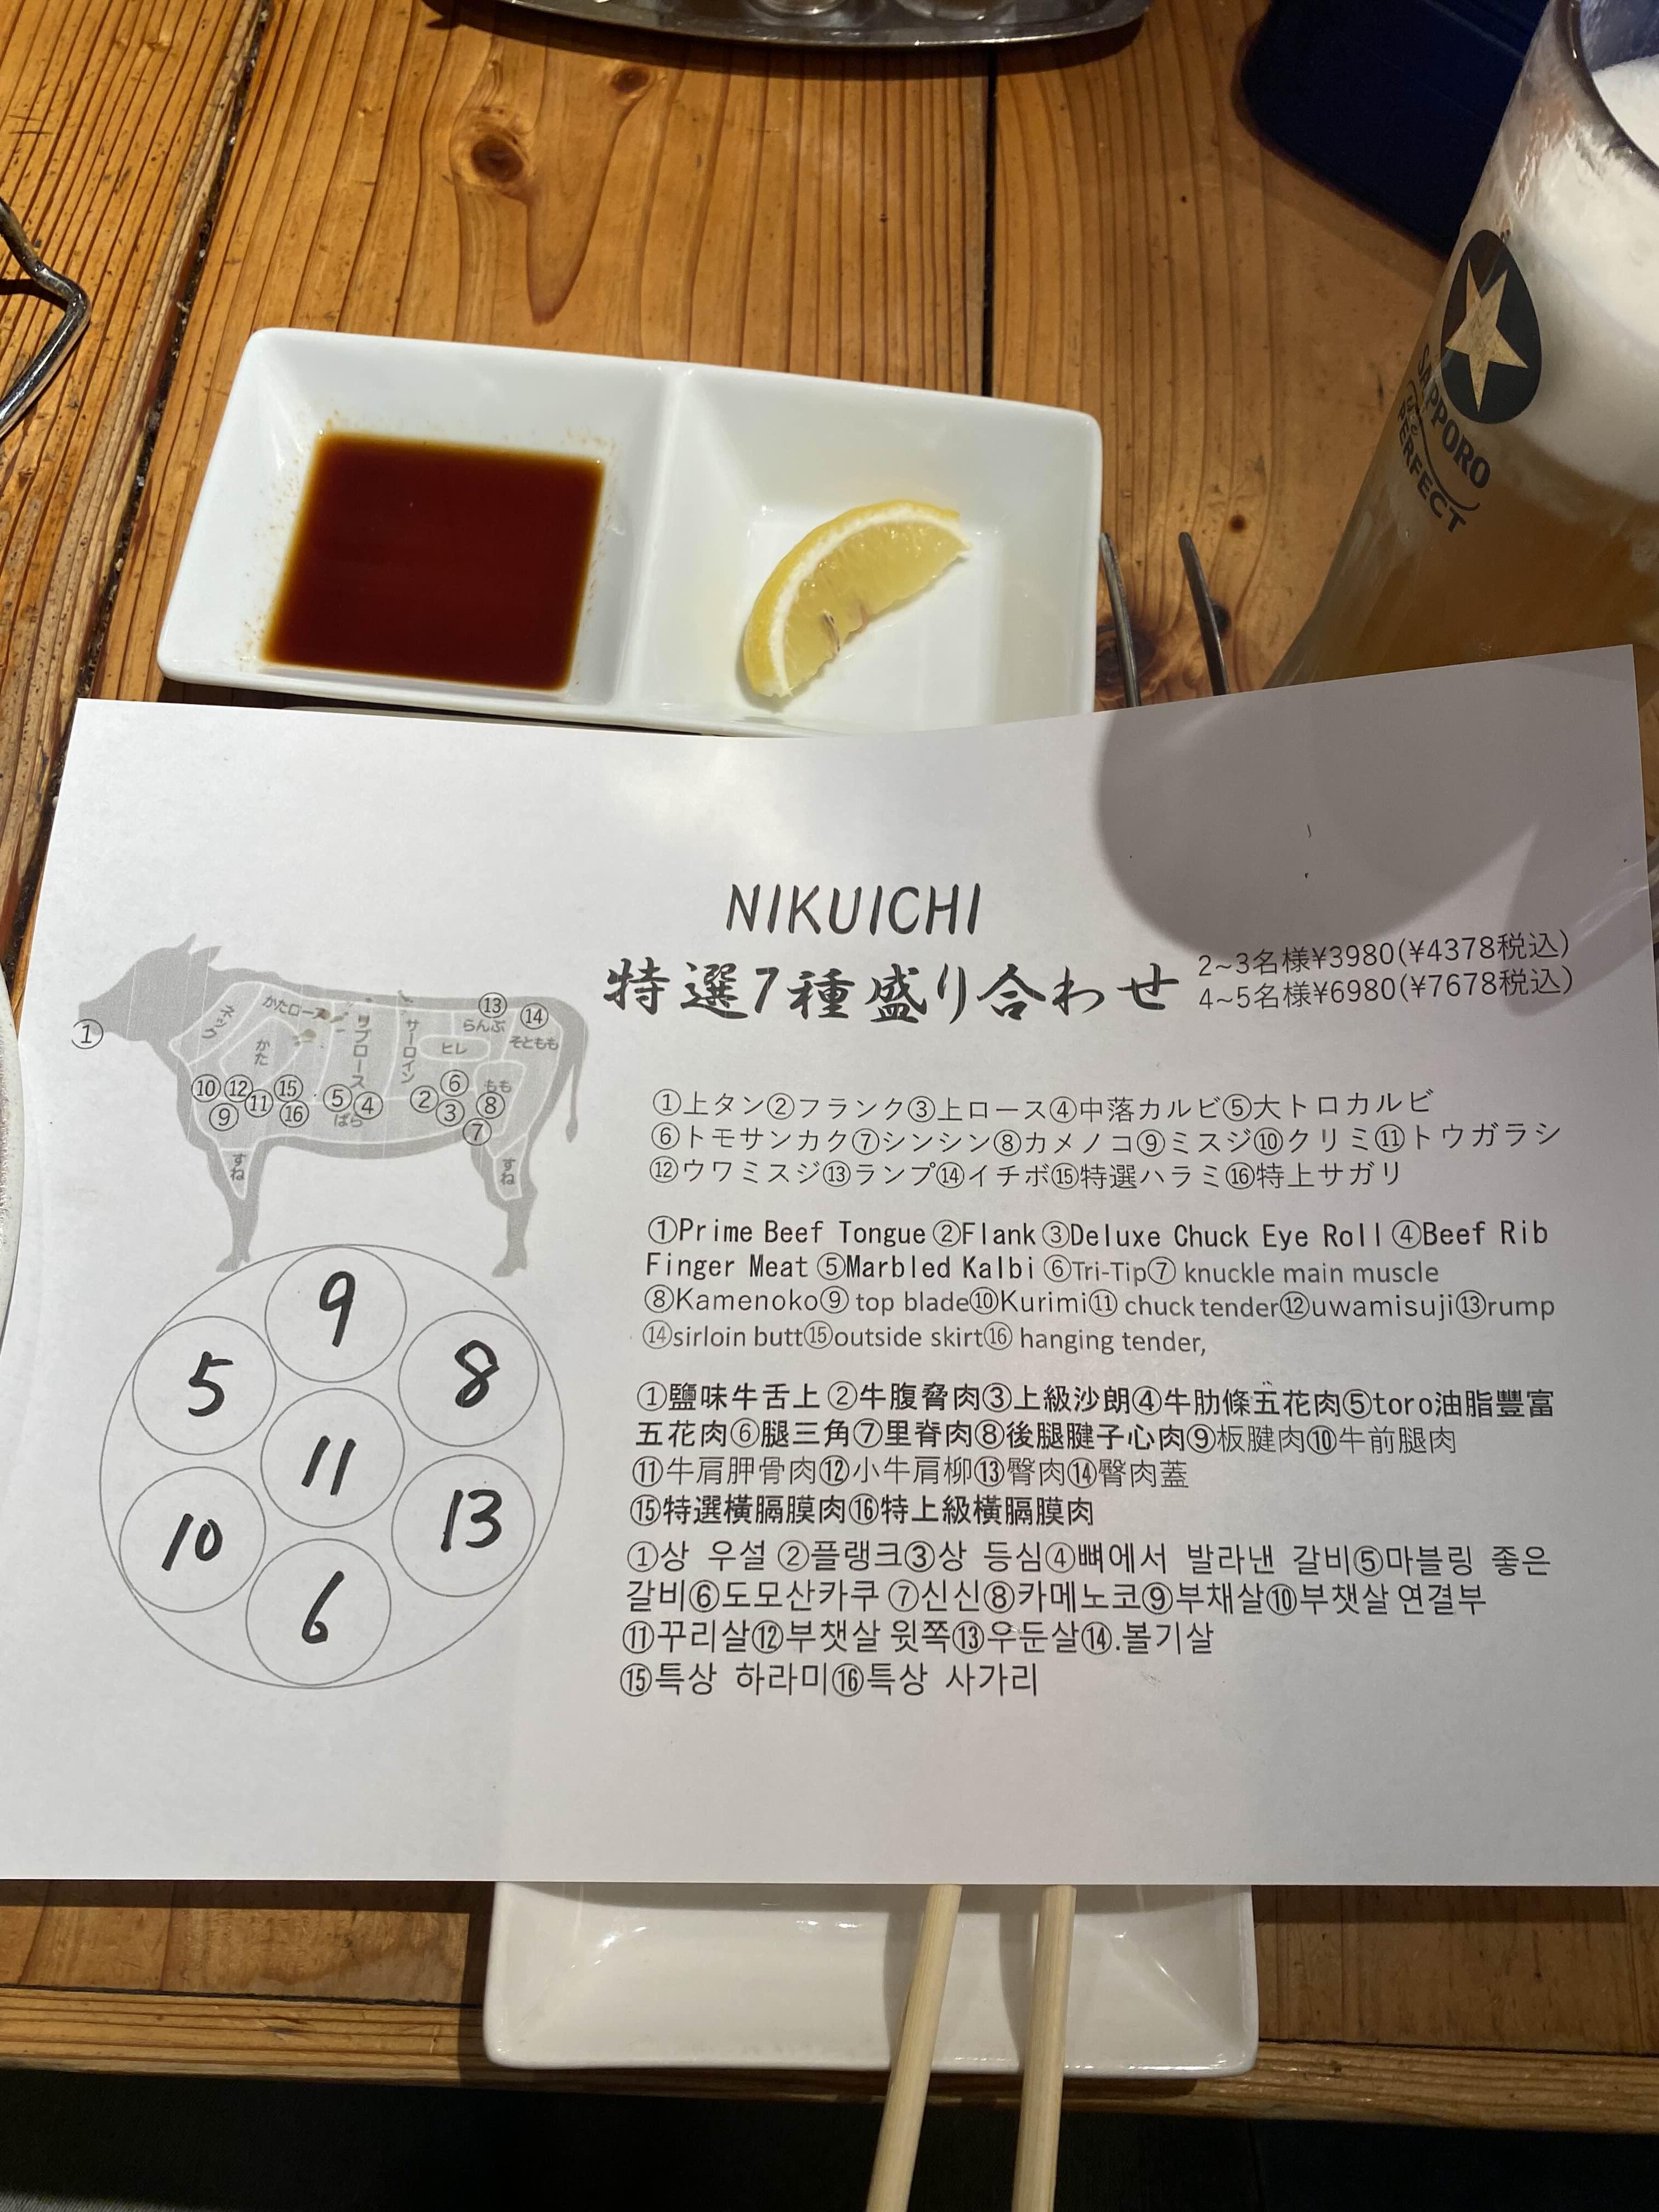 SAPPORO
the
PERFECT
NIKUICHI
特選7種盛り合わせ
2~3名様¥3980(¥4378税込)
4~5名様¥6980(¥7678税込)
①
ネック
かたロース
かた
リブロース
サーロイン
ヒレ
らんぷ
そともも
もも
ばら
すね
すね
⑬
⑭
⑩
⑫
⑮
⑨
⑪
⑯
⑤
④
②
⑥
③
⑧
⑦
①上タン②フランク③上ロース④中落カルビ⑤大トロカルビ
⑥トモサンカク⑦シンシン⑧カメノコ⑨ミスジ⑩クリミ⑪トウガラシ
⑫ウワミスジ⑬ランプ⑭イチボ⑮特選ハラミ⑯特上サガリ
①Prime Beef Tongue ②Flank ③Deluxe Chuck Eye Roll ④Beef Rib
Finger Meat ⑤Marbled Kalbi ⑥Tri-Tip⑦ knuckle main muscle
⑧Kamenoko⑨ top blade⑩Kurimi⑪ chuck tender⑫uwamisuji⑬rump
⑭sirloin butt⑮outside skirt⑯ hanging tender,
①鹽味牛舌上 ②牛腹脅肉③上級沙朗④牛肋條五花肉⑤toro油脂豐富
五花肉⑥腿三角⑦里脊肉⑧後腿腱子心肉⑨板腱肉⑩牛前腿肉
⑪牛肩胛骨肉⑫小牛肩柳⑬臀肉⑭臀肉蓋
⑮特選橫膈膜肉⑯特上級橫膈膜肉
①상 우설 ②플랭크③상 등심④뼈에서 발라낸 갈비⑤마블링 좋은
갈비⑥도모산카쿠 ⑦신신⑧카메노코⑨부채살⑩부챗살 연결부
⑪꾸리살⑫부챗살 윗쪽⑬우둔살⑭.볼기살
⑮특상 하라미⑯특상 사가리
9
5
8
11
10
13
6